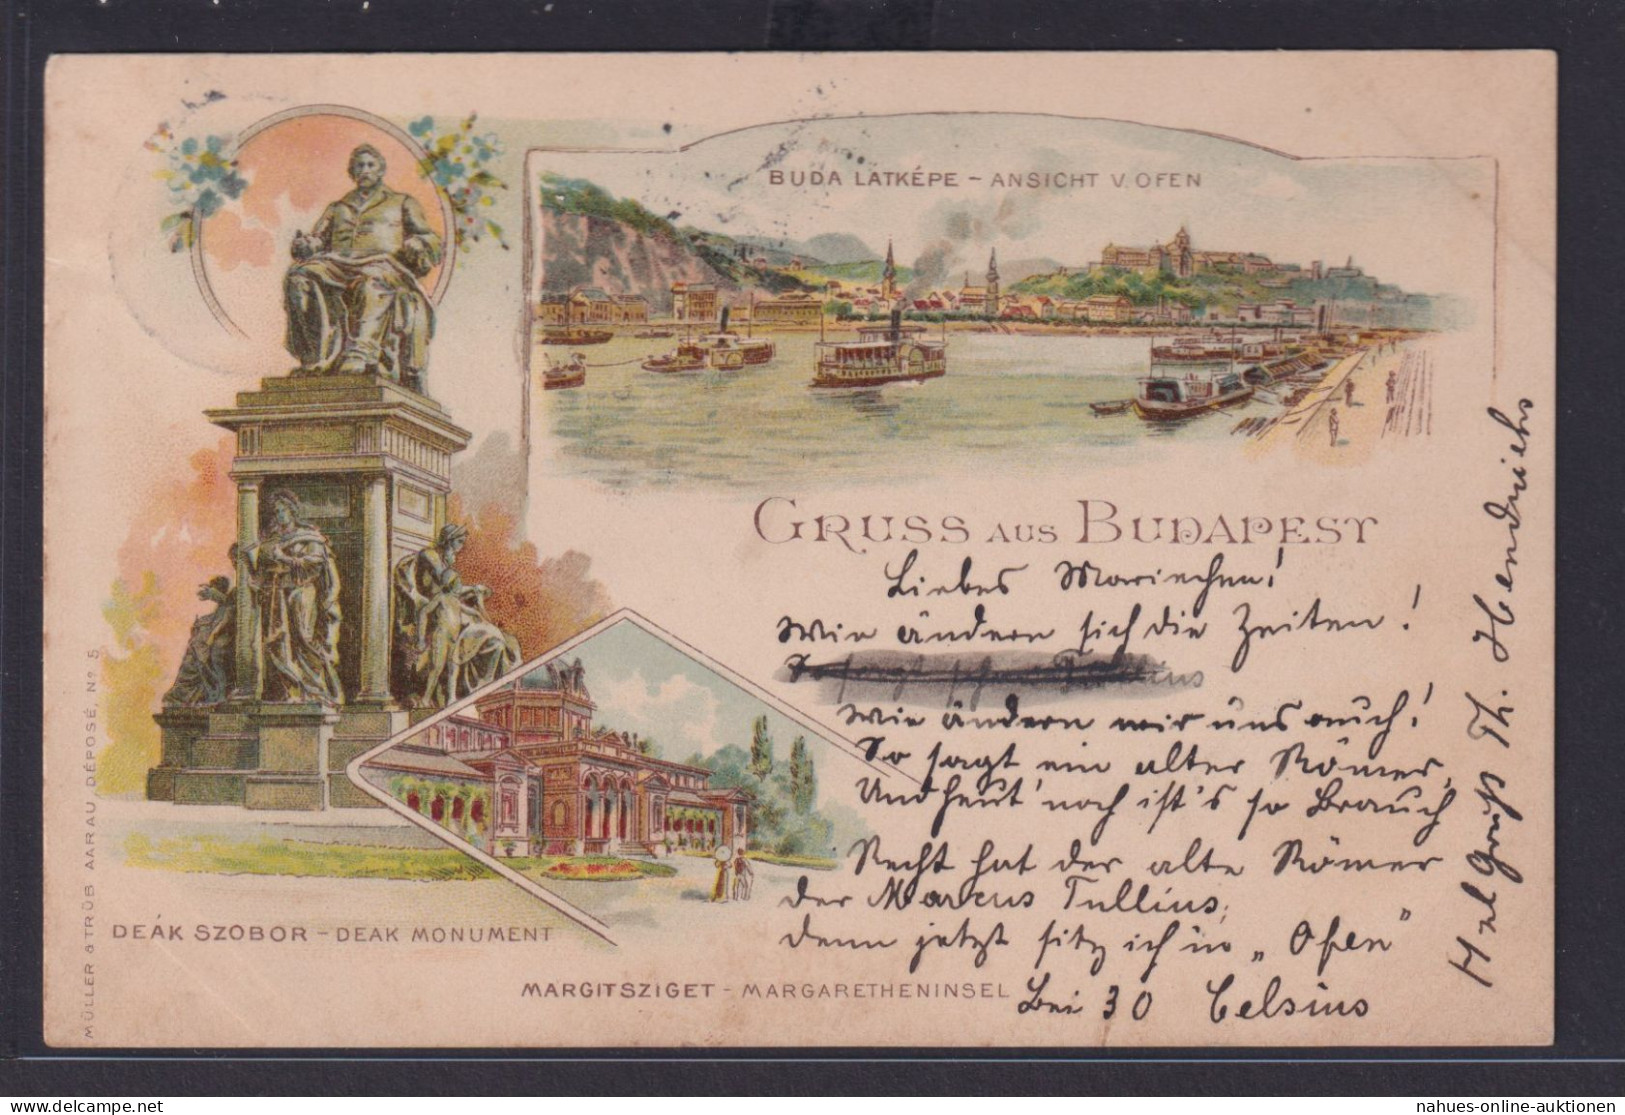 BUDA LATKÉPE – ANSICHT V. OFEN
GRUSS AUS BUDAPEST
Liebes Mariechen!
Wie ändern sich die Zeiten!
So sagt schon Tullius
Wie ändern wir uns auch!
So sagt ein alter Römer,
Und heut' noch ist's so Brauch
Recht hat der alte Römer
der Marcus Tullius,
denn jetzt sitz ich in „Ofen“
Bei 30 Celsius
Gruß Th. Hendrichs
DEÁK SZOBOR – DEAK MONUMENT
MARGITSZIGET – MARGARETHENINSEL
MÜLLER & TRÜB AARAU DÉPOSÉ, Nº 5
nahues-online-auktionen